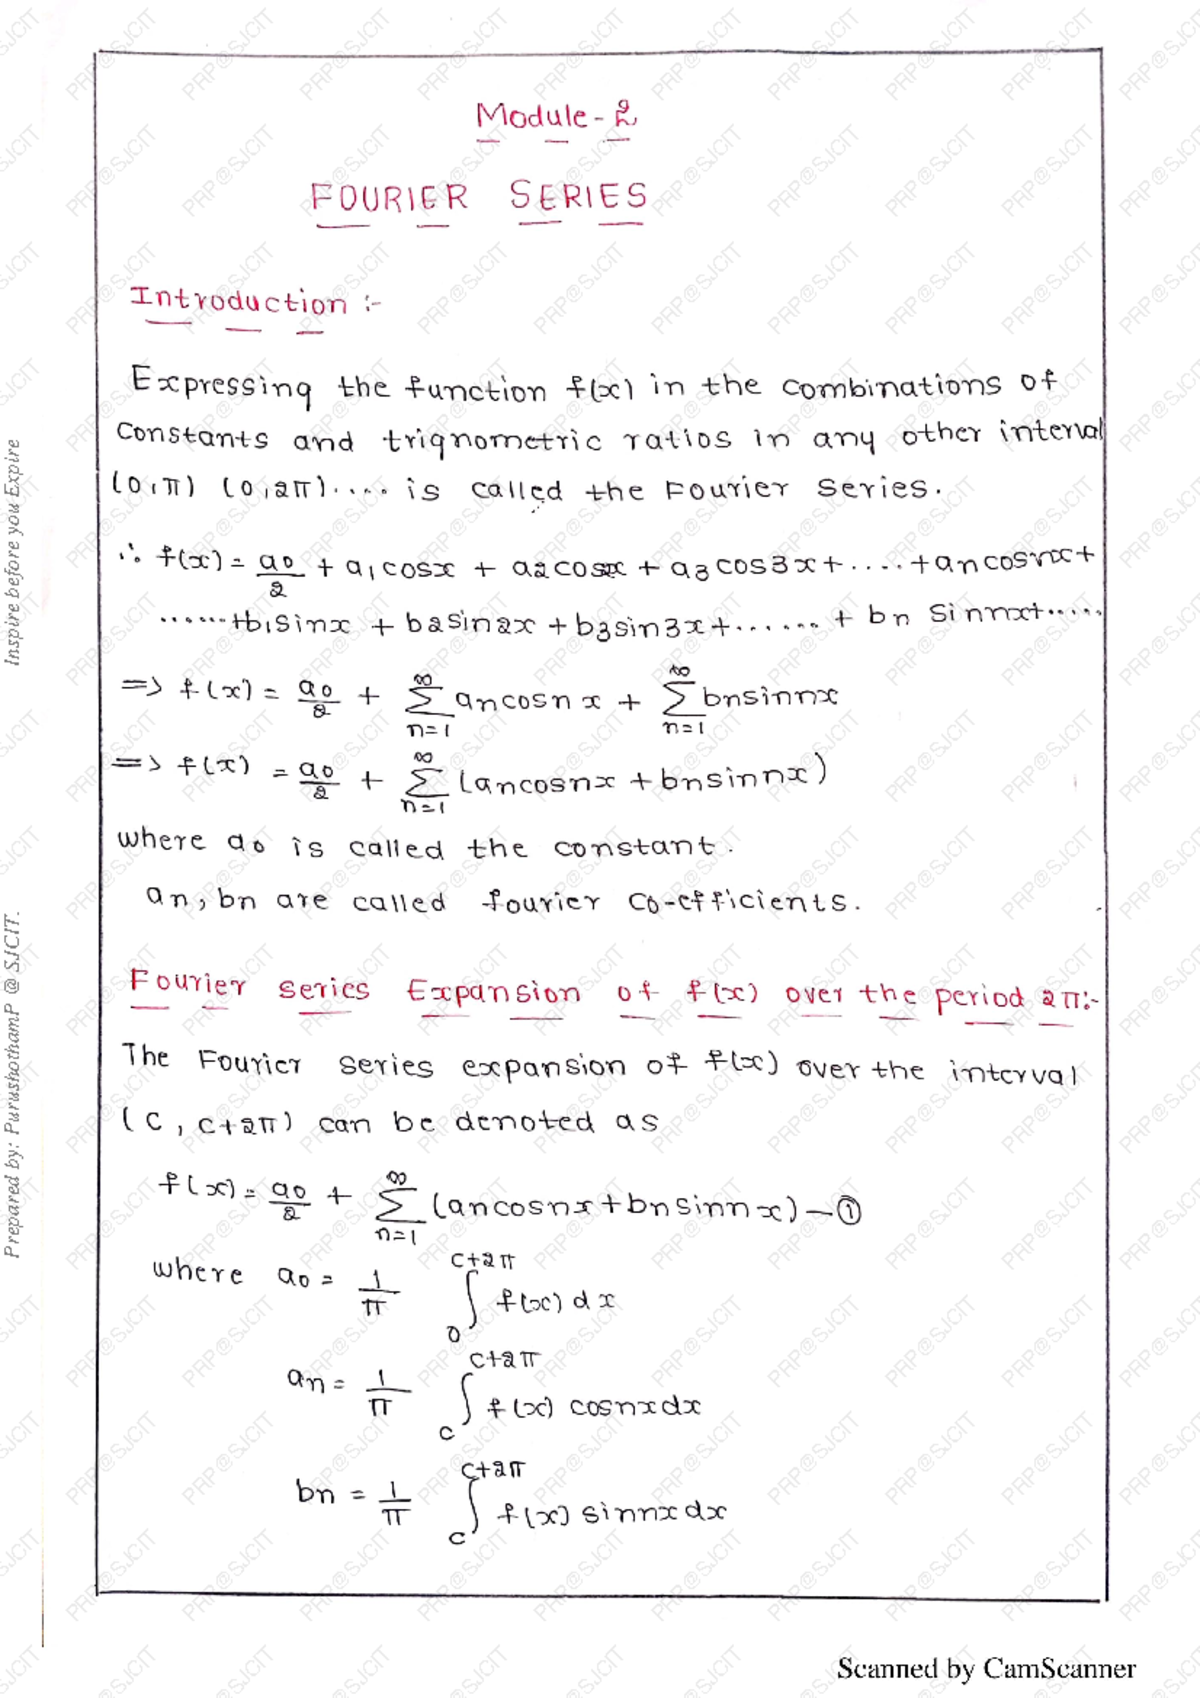 Module-2
FOURIER SERIES
Introduction :-
Expressing the function f(x) in the combinations of
constants and trignometric ratios in any other interval
(0,π) (0,2π).... is called the Fourier series.
∴ f(x) = a0/2 + a1cosx + a2cos2x + a3cos3x + .... + an cosnx +
......+b1sinx + b2sin2x + b3sin3x + ...... + bn sinnx+.....
=> f(x) = a0/2 + ∞∑n=1 an cosn x + ∞∑n=1 bn sinnx
=> f(x) = a0/2 + ∞∑n=1 (an cosnx + bn sinnx)
where a0 is called the constant.
an, bn are called fourier co-efficients.
Fourier series Expansion of f(x) over the period 2π:-
The Fourier series expansion of f(x) over the interval
(c, c+2π) can be denoted as
f(x) = a0/2 + ∞∑n=1 (an cosnx + bn sinnx) — ①
where a0 = 1/π ∫0^c+2π f(x) dx
an = 1/π ∫c^c+2π f(x) cosnx dx
bn = 1/π ∫c^c+2π f(x) sinnx dx
Inspire before you Expire
Prepared by: PurushothamP @ SJCIT.
PRP@SJCIT
Scanned by CamScanner